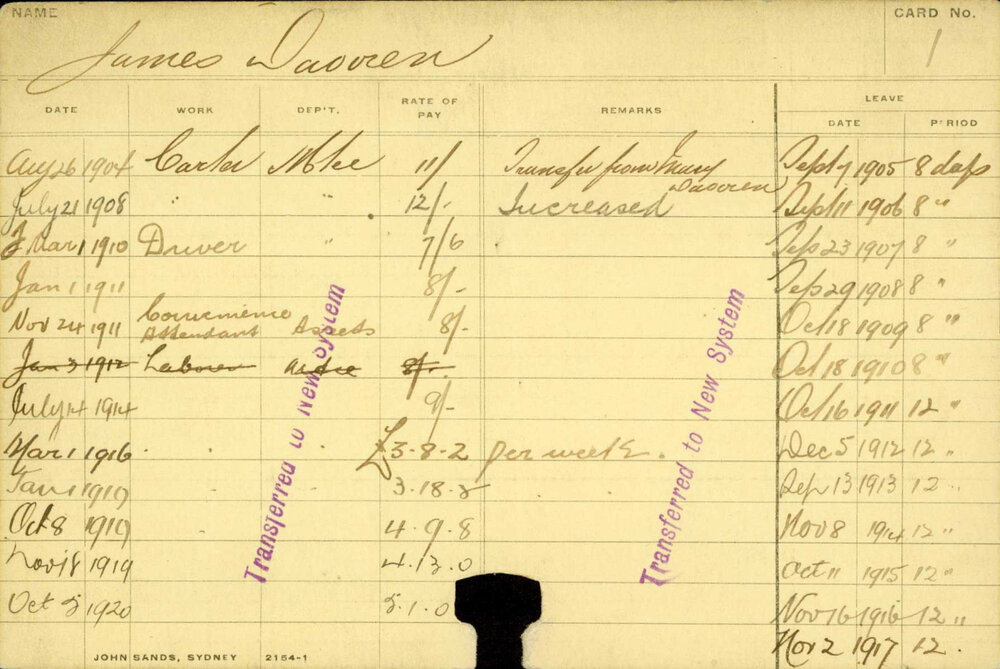 NAME CARD No.
James 1
DATE WORK DEP'T. RATE OF PAY REMARKS LEAVE
DATE PERIOD
Aug 26 1904 Carter 11/ Transfer from Mary Sept 7 1905 8 days
July 21 1908 " " 12/- Increased Sept 11 1906 8 "
Mar 1 1910 Driver " 7/6 Sep 23 1907 8 "
Jan 1 1911 8/- Sep 29 1908 8 "
Nov 24 1911 Attendant Assets 8/- Oct 18 1909 8 "
Jan 3 1912 Laborer 8/- Oct 18 1910 8 "
July 14 1914 9/- Oct 16 1911 12 "
Mar 1 1916 £3-8-2 per week. Dec 5 1912 12 "
Jan 1 1919 3.18.2 Sep 13 1913 12 "
Oct 8 1919 4.9.8 Nov 8 1914 12 "
Nov 18 1919 4.13.0 Oct 11 1915 12 "
Oct 1920 5.1.0 Nov 16 1916 12 "
Nov 2 1917 12.
Transferred to New System
Transferred to New System
JOHN SANDS, SYDNEY 2154-1